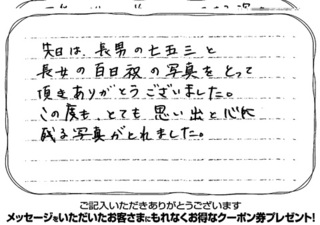 先日は、長男の七五三と
長女の百日祝の写真をとって
頂きありがとうございました。
この度も、とても思い出と心に
残る写真がとれました。
ご記入いただきありがとうございます
メッセージをいただいたお客さまにもれなくお得なクーポン券プレゼント!